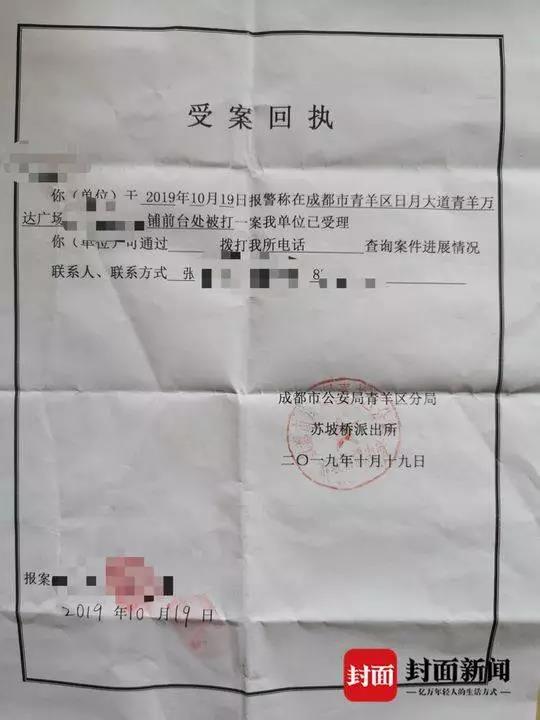 受案回执
你（单位）于 2019年10月19日报警称在成都市青羊区日月大道青羊万
达广场 铺前台处被打一案我单位已受理
你（单位）可通过 拨打我所电话 查询案件进展情况
联系人、联系方式 张 8
成都市公安局青羊区分局
苏坡桥派出所
二〇一九年十月十九日
报案
2019 年 10 月 19 日
封面 封面新闻
亿万年轻人的生活方式